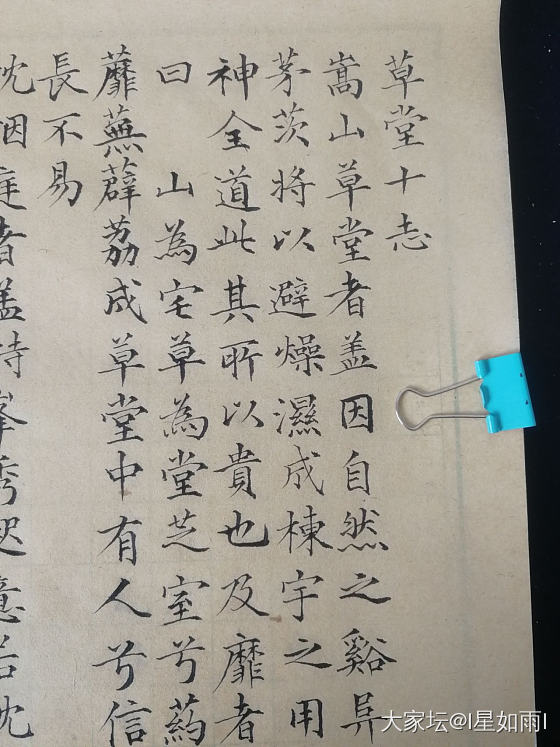 草堂十志
嵩山草堂者盖因自然之谿
茅茨将以避燥濕成棟宇之用
神全道此其所以貴也及靡者
曰 山為宅草為堂芝室兮葯
蘼蕪薜荔成草堂中有人兮信
長不易
枕烟庭者盖特峯秀意若枕
大家坛@I星如雨I